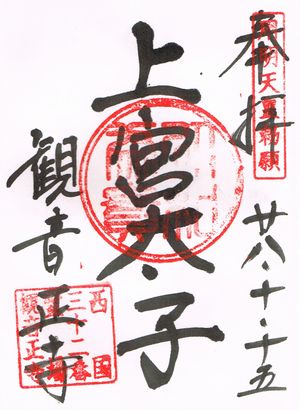 奉拝
廿八・十・十五
上宮太子
観音正寺
西国
三十二番